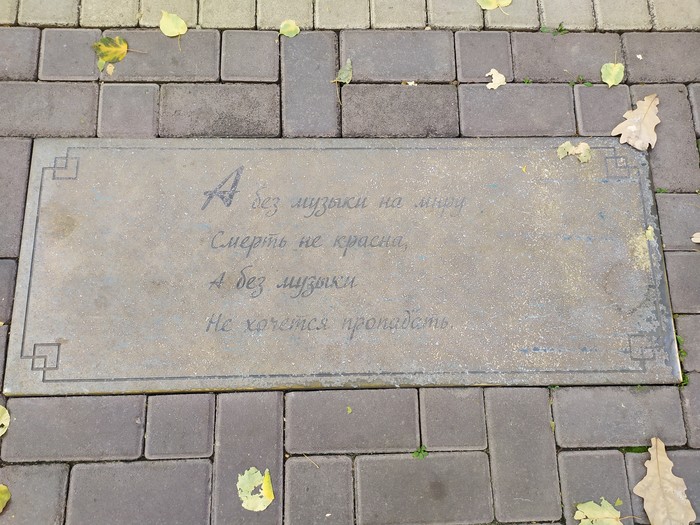 А без музыки на миру
Смерть не красна,
А без музыки
Не хочется пропадать.